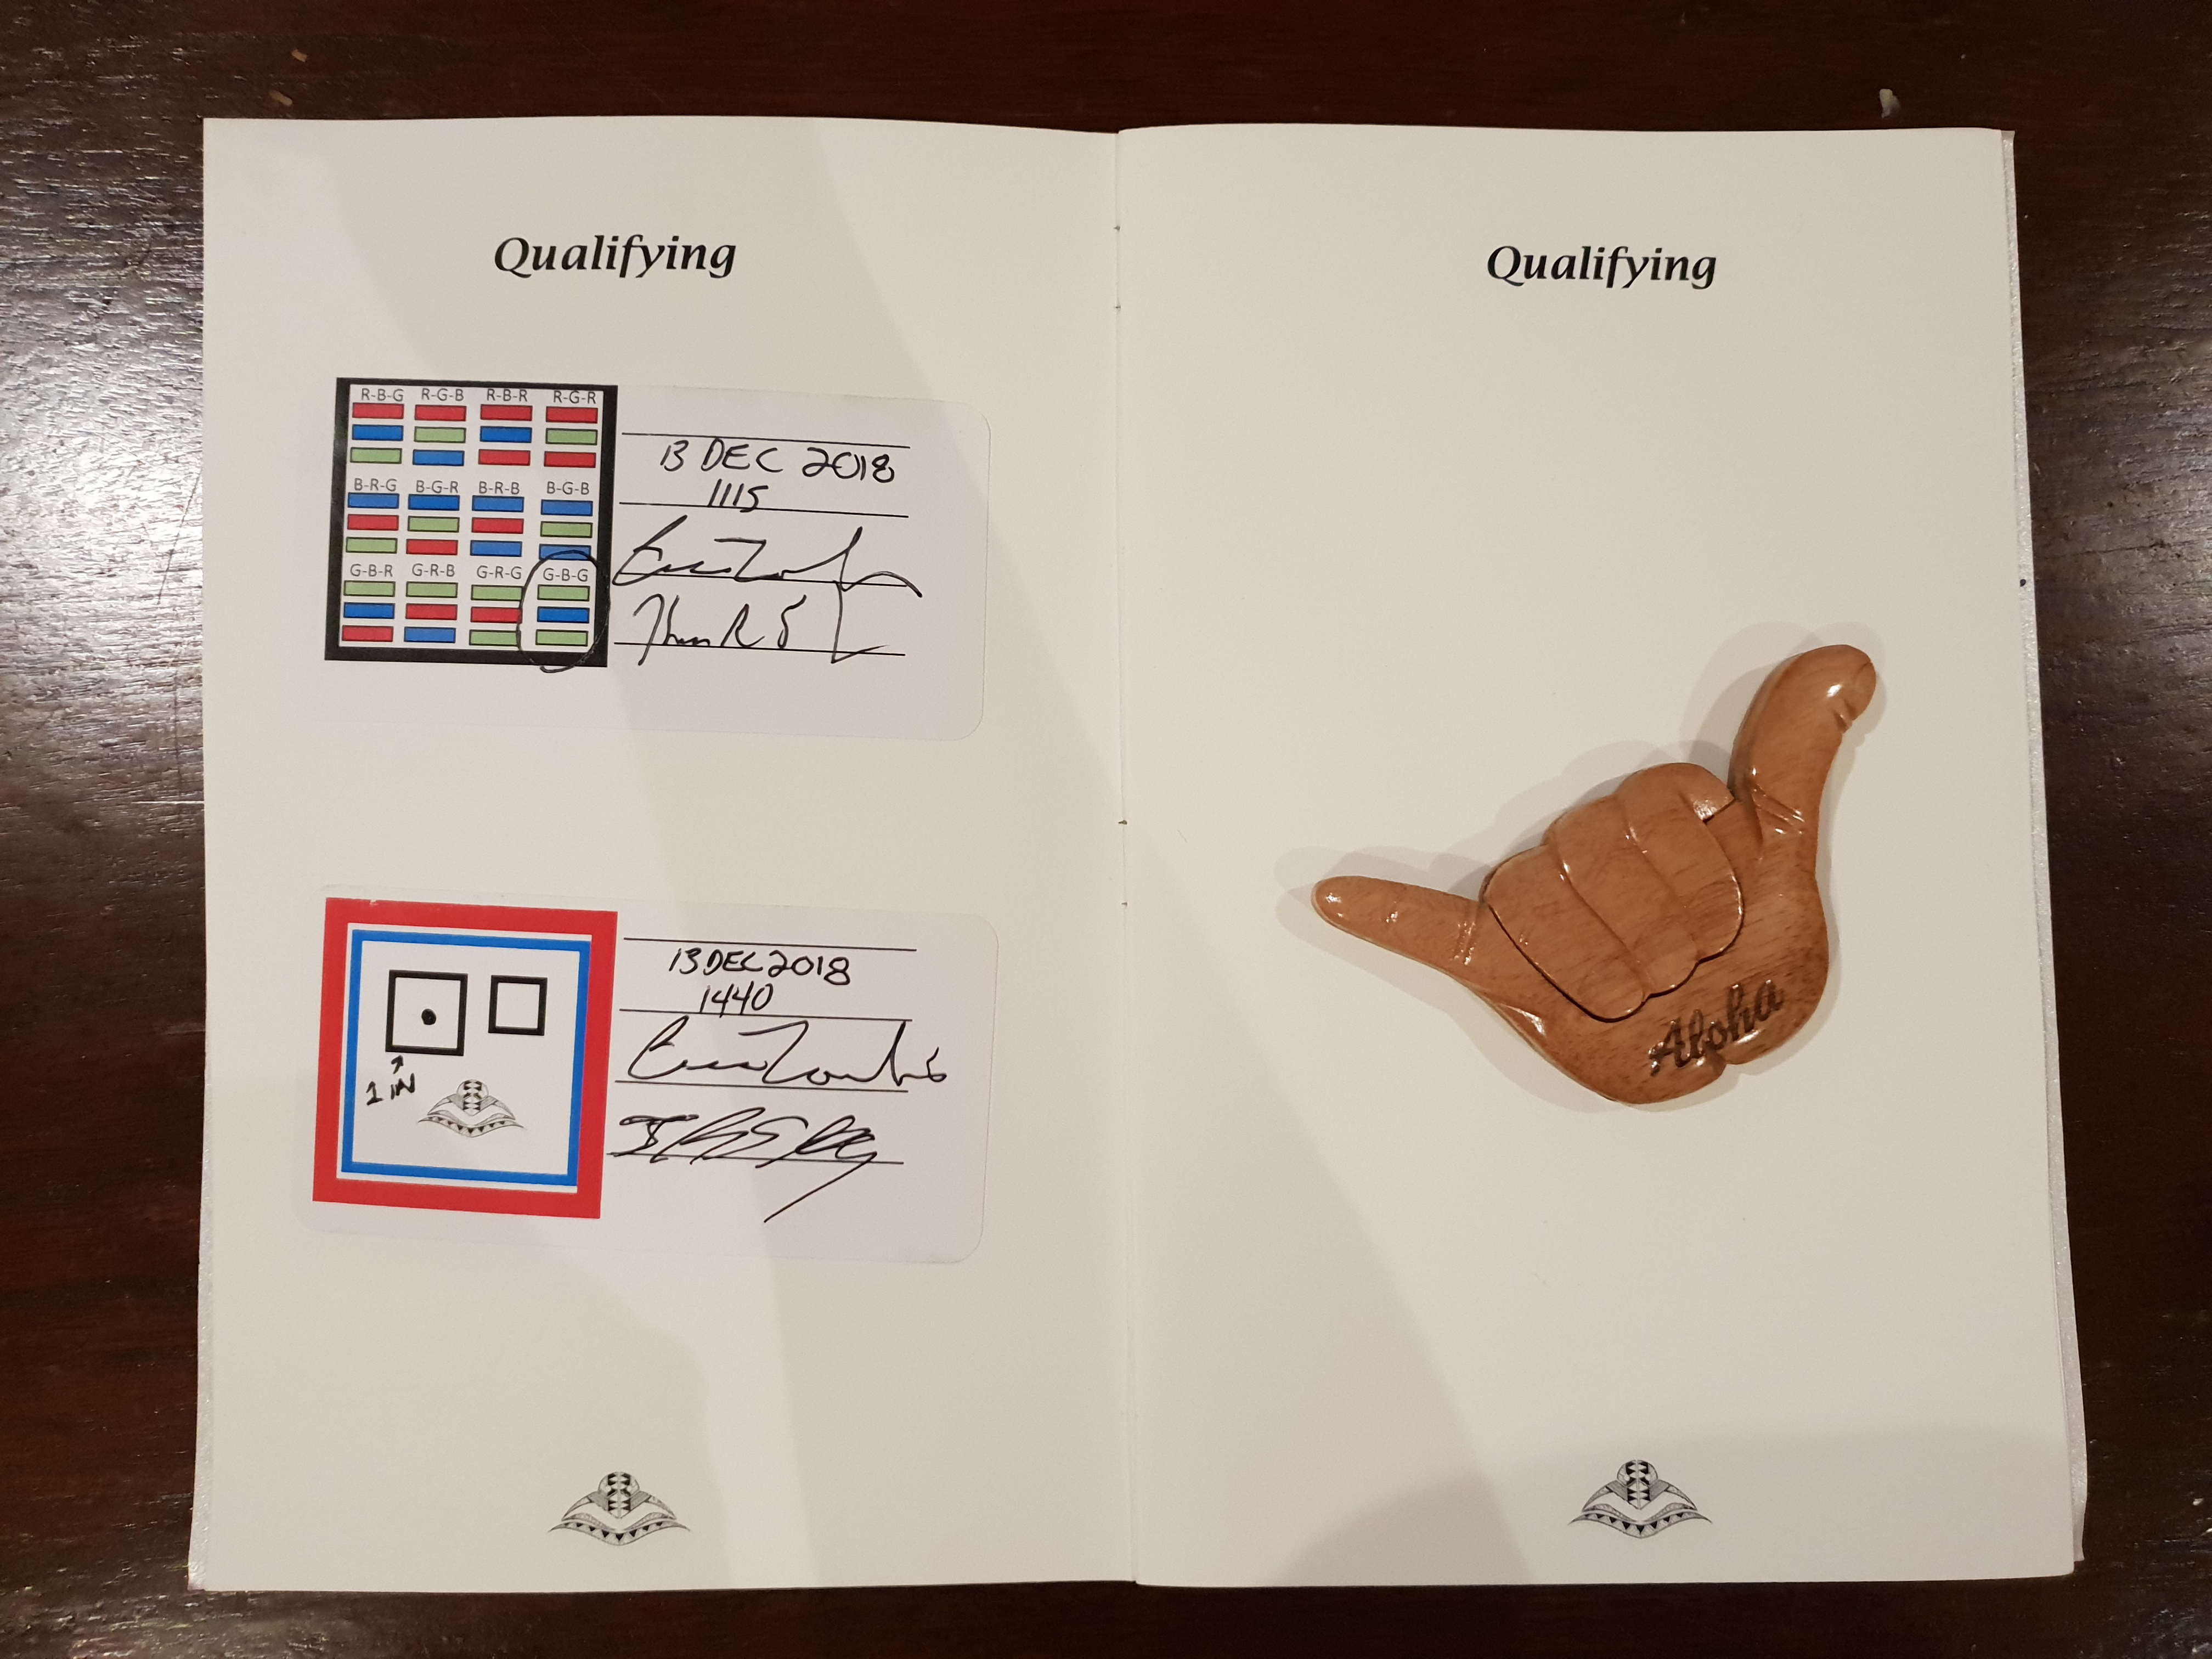 Qualifying
R-B-G R-G-B R-B-R R-G-R
B-R-G B-G-R B-R-B B-G-B
G-B-R G-R-B G-R-G G-B-G
13 DEC 2018
1115
13 DEC 2018
1440
1 IN
Qualifying
Aloha